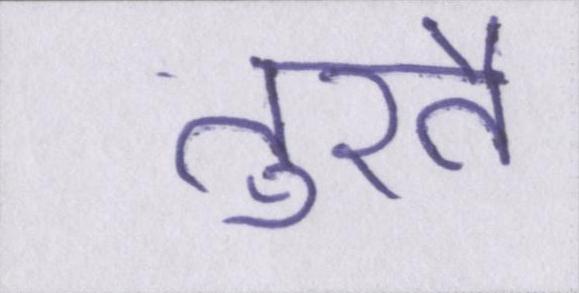 तुरतै